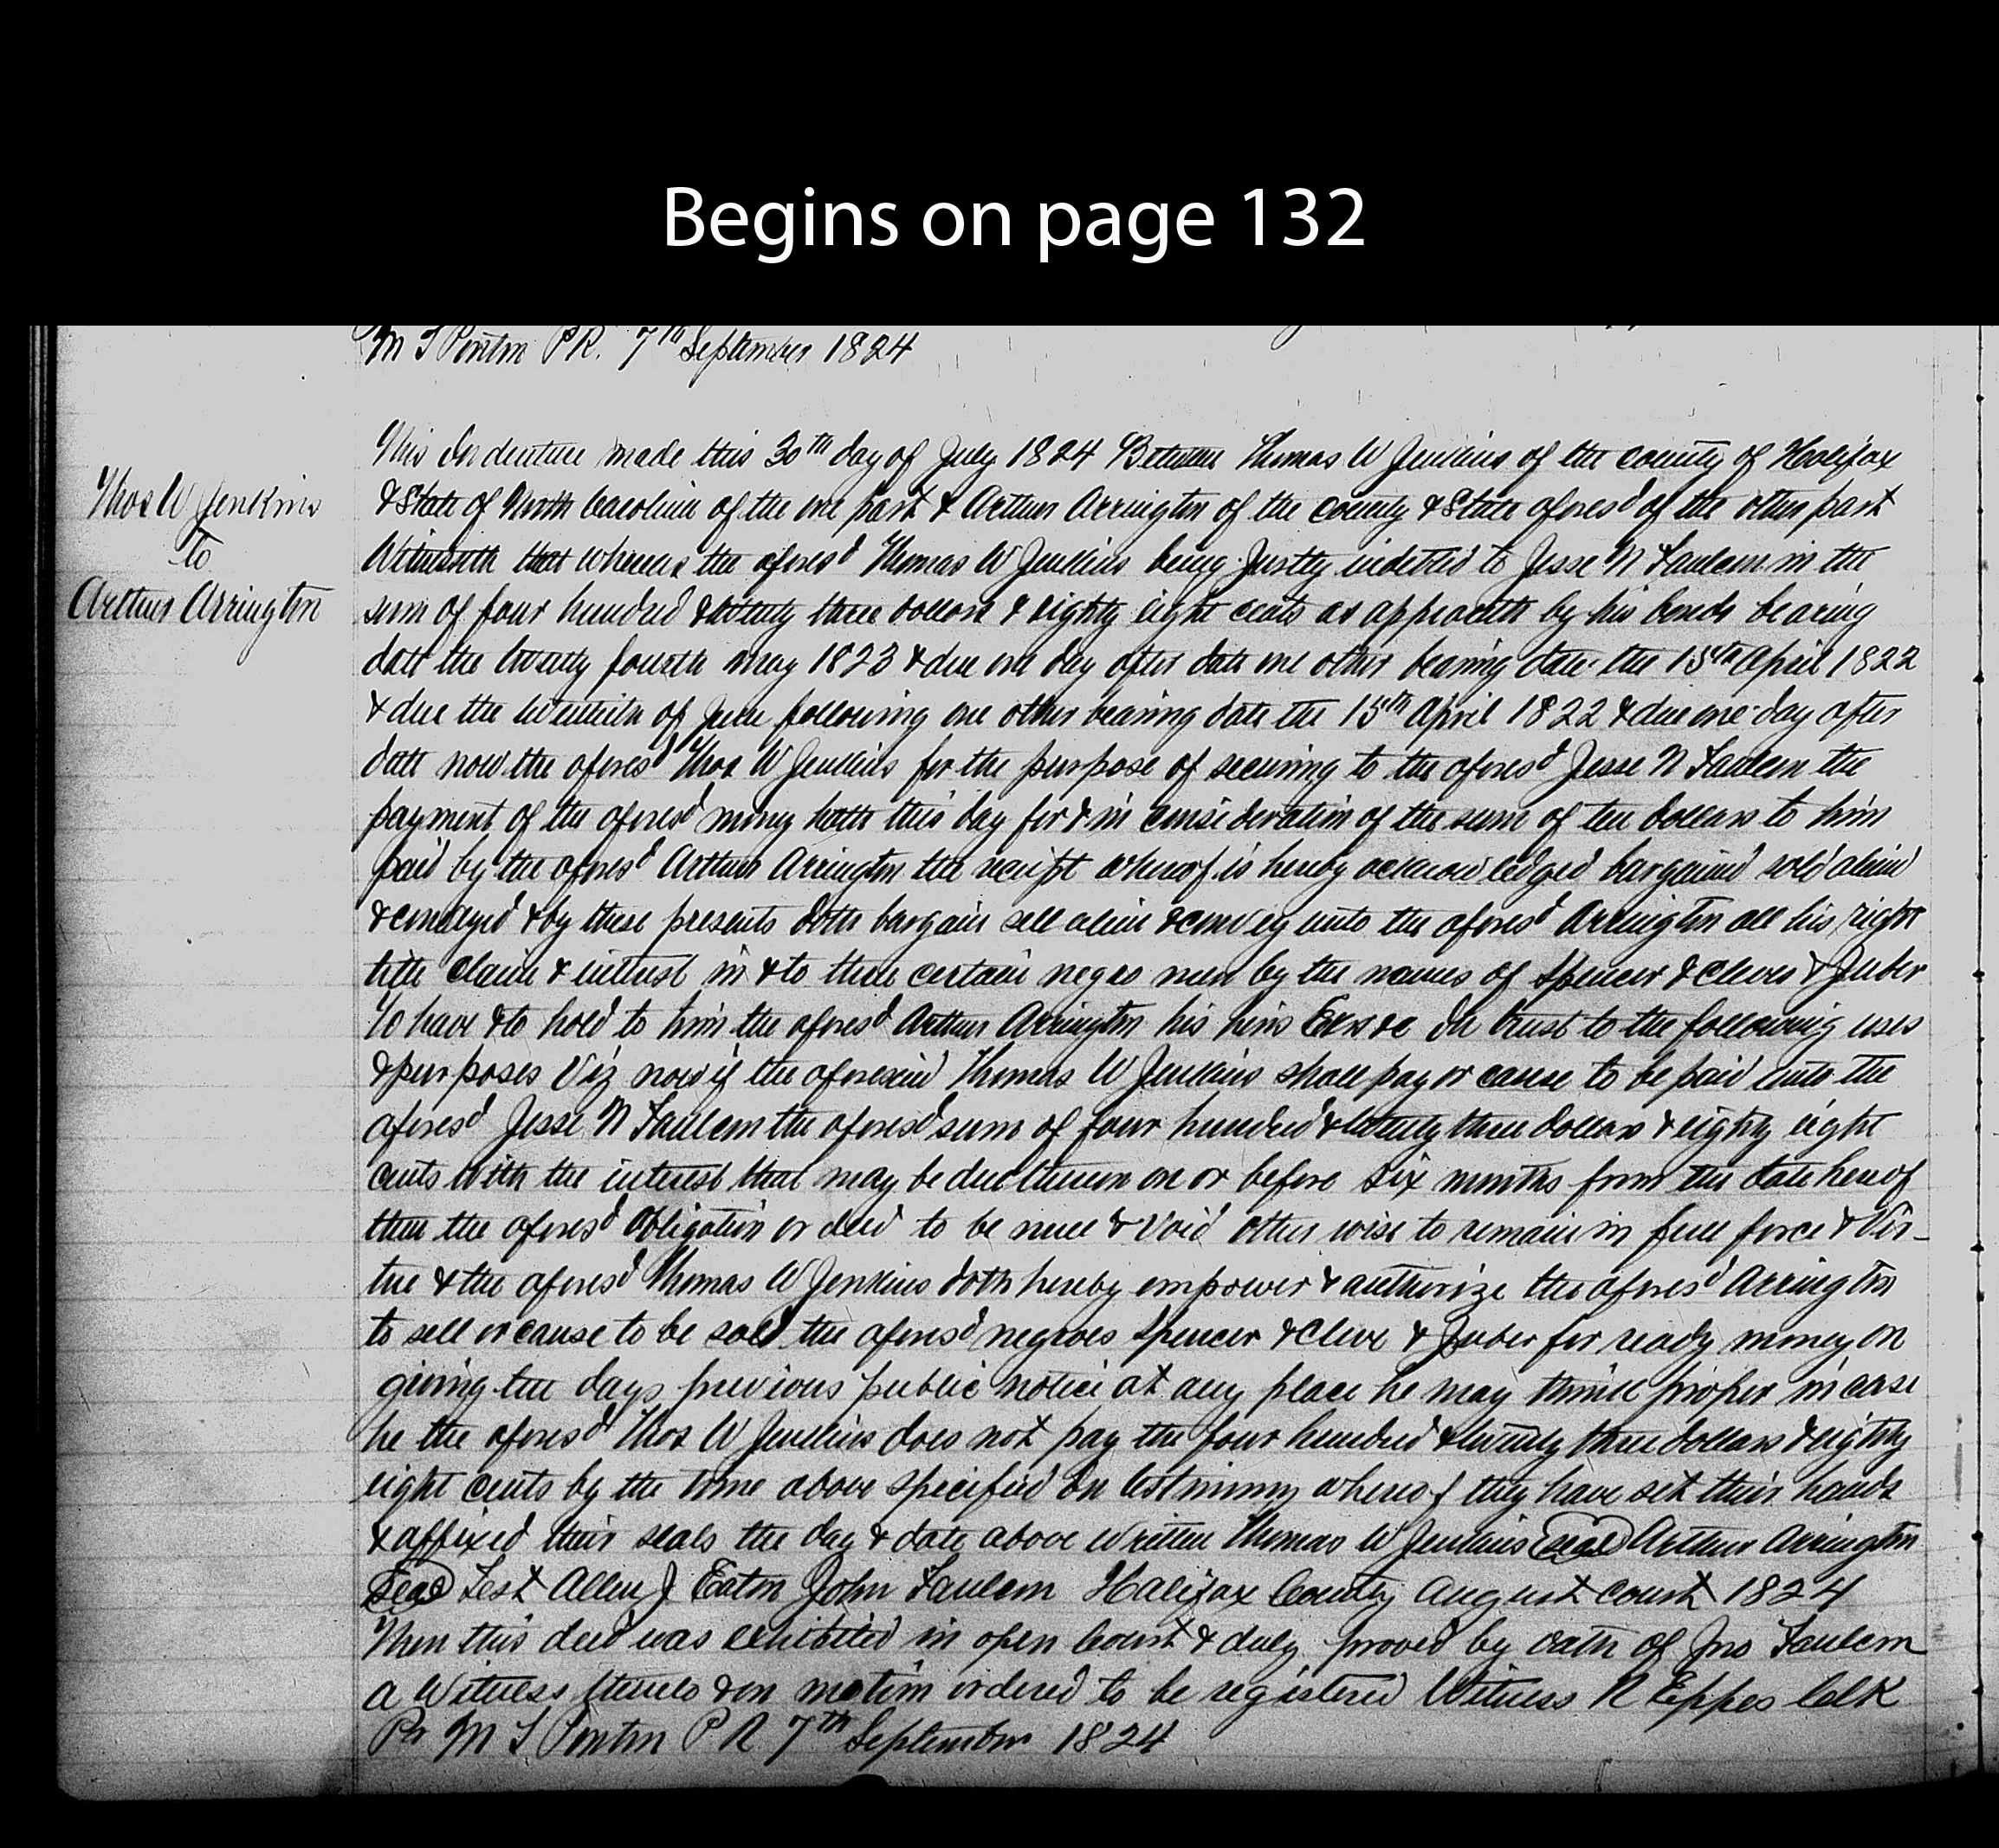 Begins on page 132
M T Ponton P R. 7th September 1824
This Indenture made this 30th day of July 1824 Between Thomas W Jenkins of the county of Halifax
Thos W Jenkins
to
Arthur Arrington
& State of North Carolina of the one part & Arthur Arrington of the county & State afores'd of the other part
Witnesseth that whereas the afores'd Thomas W Jenkins being Justly indebted to Jesse N Faulcon in the
sum of four hundred & twenty three dollars & eighty eight cents as appeareth by his bonds bearing
date the twenty fourth may 1823 & due one day after date one other bearing date the 15th April 1822
& due the twentieth of June following one other bearing date the 15th April 1822 & due one day after
date now the afores'd Thos W Jenkins for the purpose of securing to the afores'd Jesse N Faulcon the
payment of the afores'd money hath this day for & in consideration of the sum of ten dollars to him
paid by the afores'd Arthur Arrington the receipt whereof is hereby acknowledged bargained sold alien'd
& conveyed & by these presents doth bargain sell alien & convey unto the afores'd Arrington all his right
title claim & interest in & to three certain negro men by the names of Spencer & Cleve & Juber
To have & to hold to him the afores'd Arthur Arrington his heirs Exrs &c In trust to the following uses
& purposes Viz now if the aforesaid Thomas W Jenkins shall pay or cause to be paid unto the
afores'd Jesse N Faulcon the afores'd sum of four hundred & twenty three dollars & eighty eight
cents with the interest that may be due thereon on or before six months from the date hereof
then the afores'd Obligation or deed to be null & Void other wise to remain in full force & Vir-
tue & the afores'd Thomas W Jenkins doth hereby empower & authorize the afores'd Arrington
to sell or cause to be sold the afores'd negroes Spencer & Cleve & Juber for ready money on
giving ten days previous public notice at any place he may think proper in case
he the afores'd Thos W Jenkins does not pay the four hundred & twenty three dollars & eighty
eight cents by the time above specified In testimony whereof they have set their hands
& affixed their seals the day & date above written Thomas W Jenkins Seal Arthur Arrington
Seal Test Allen J Eaton John Faulcon Halifax County August court 1824
Then this deed was exhibited in open Court & duly proved by oath of Jno Faulcon
a Witness thereto & on motion ordered to be registered Witness R Eppes Calk
Pr M T Ponton P R 7th September 1824